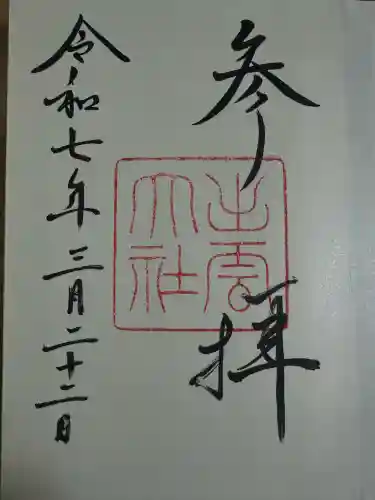 参拝
出雲
大社
令和七年三月二十二日